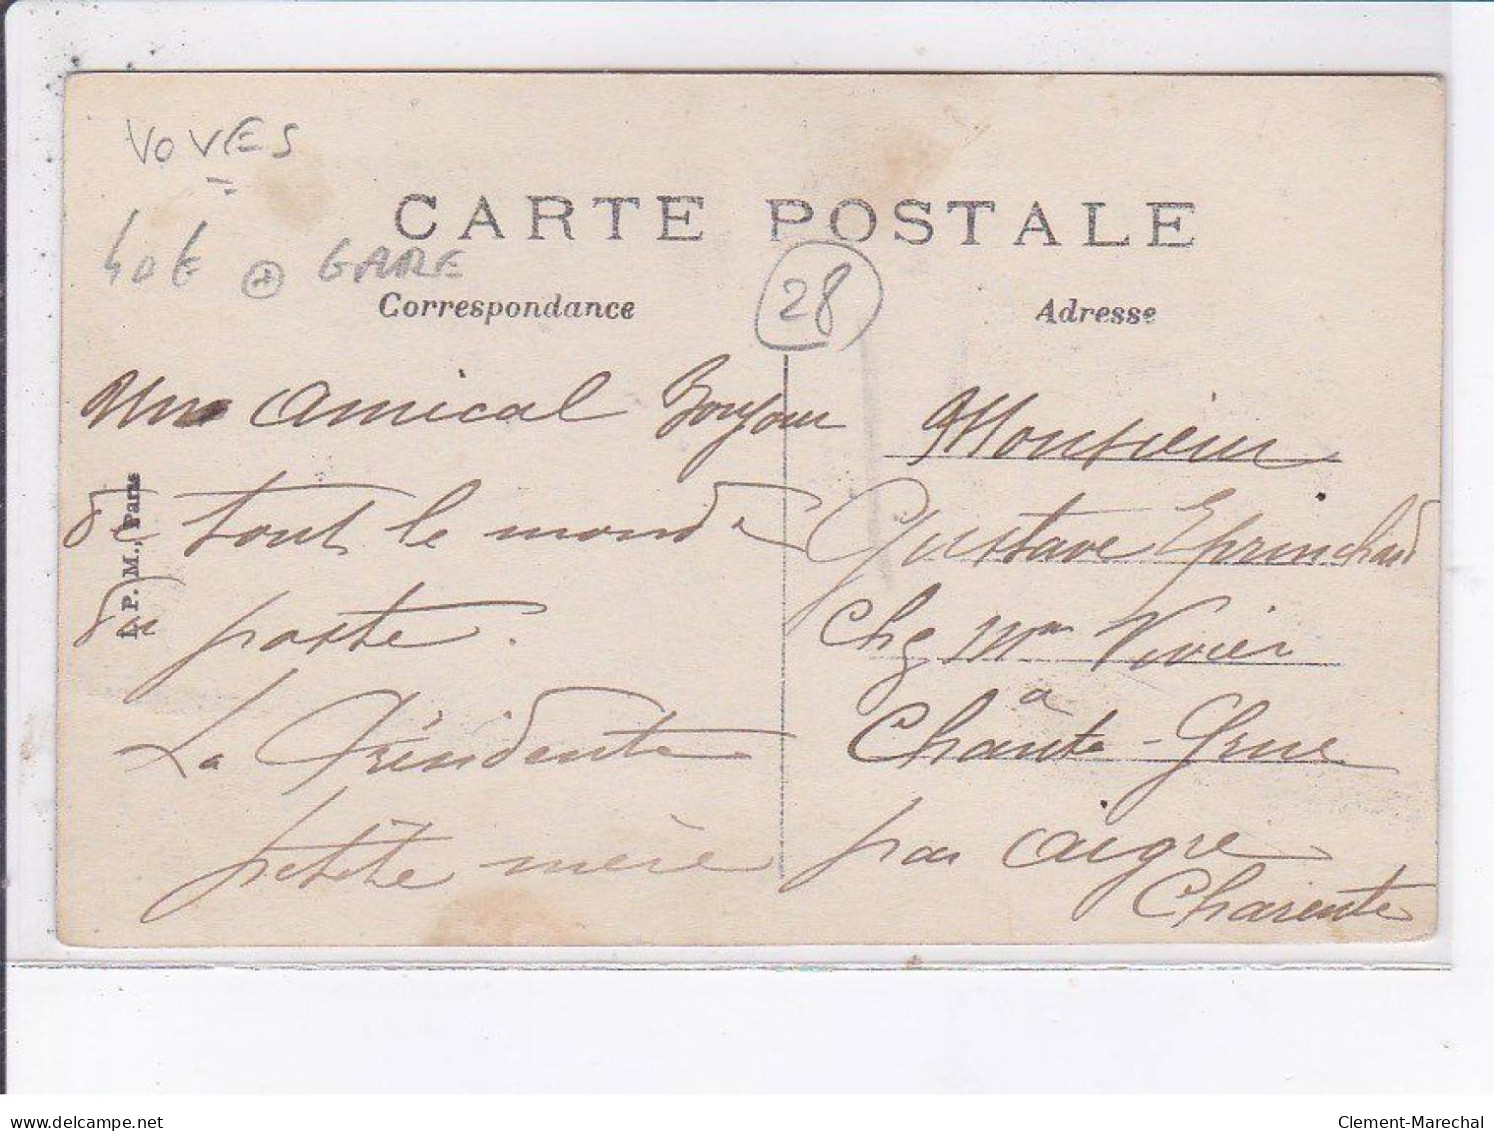 VOVES
40€ GARE
CARTE POSTALE
28
Correspondance
Adresse
Un Amical Bonjour
de tout le monde
du poste.
La Présidente
petite mère
I. P. M., Paris
Monsieur
Gustave Eprinchard
Chez Mr Vivier
a
Chante-Grue
par Aigre
Charente
www.delcampe.net
Clement-Marechal